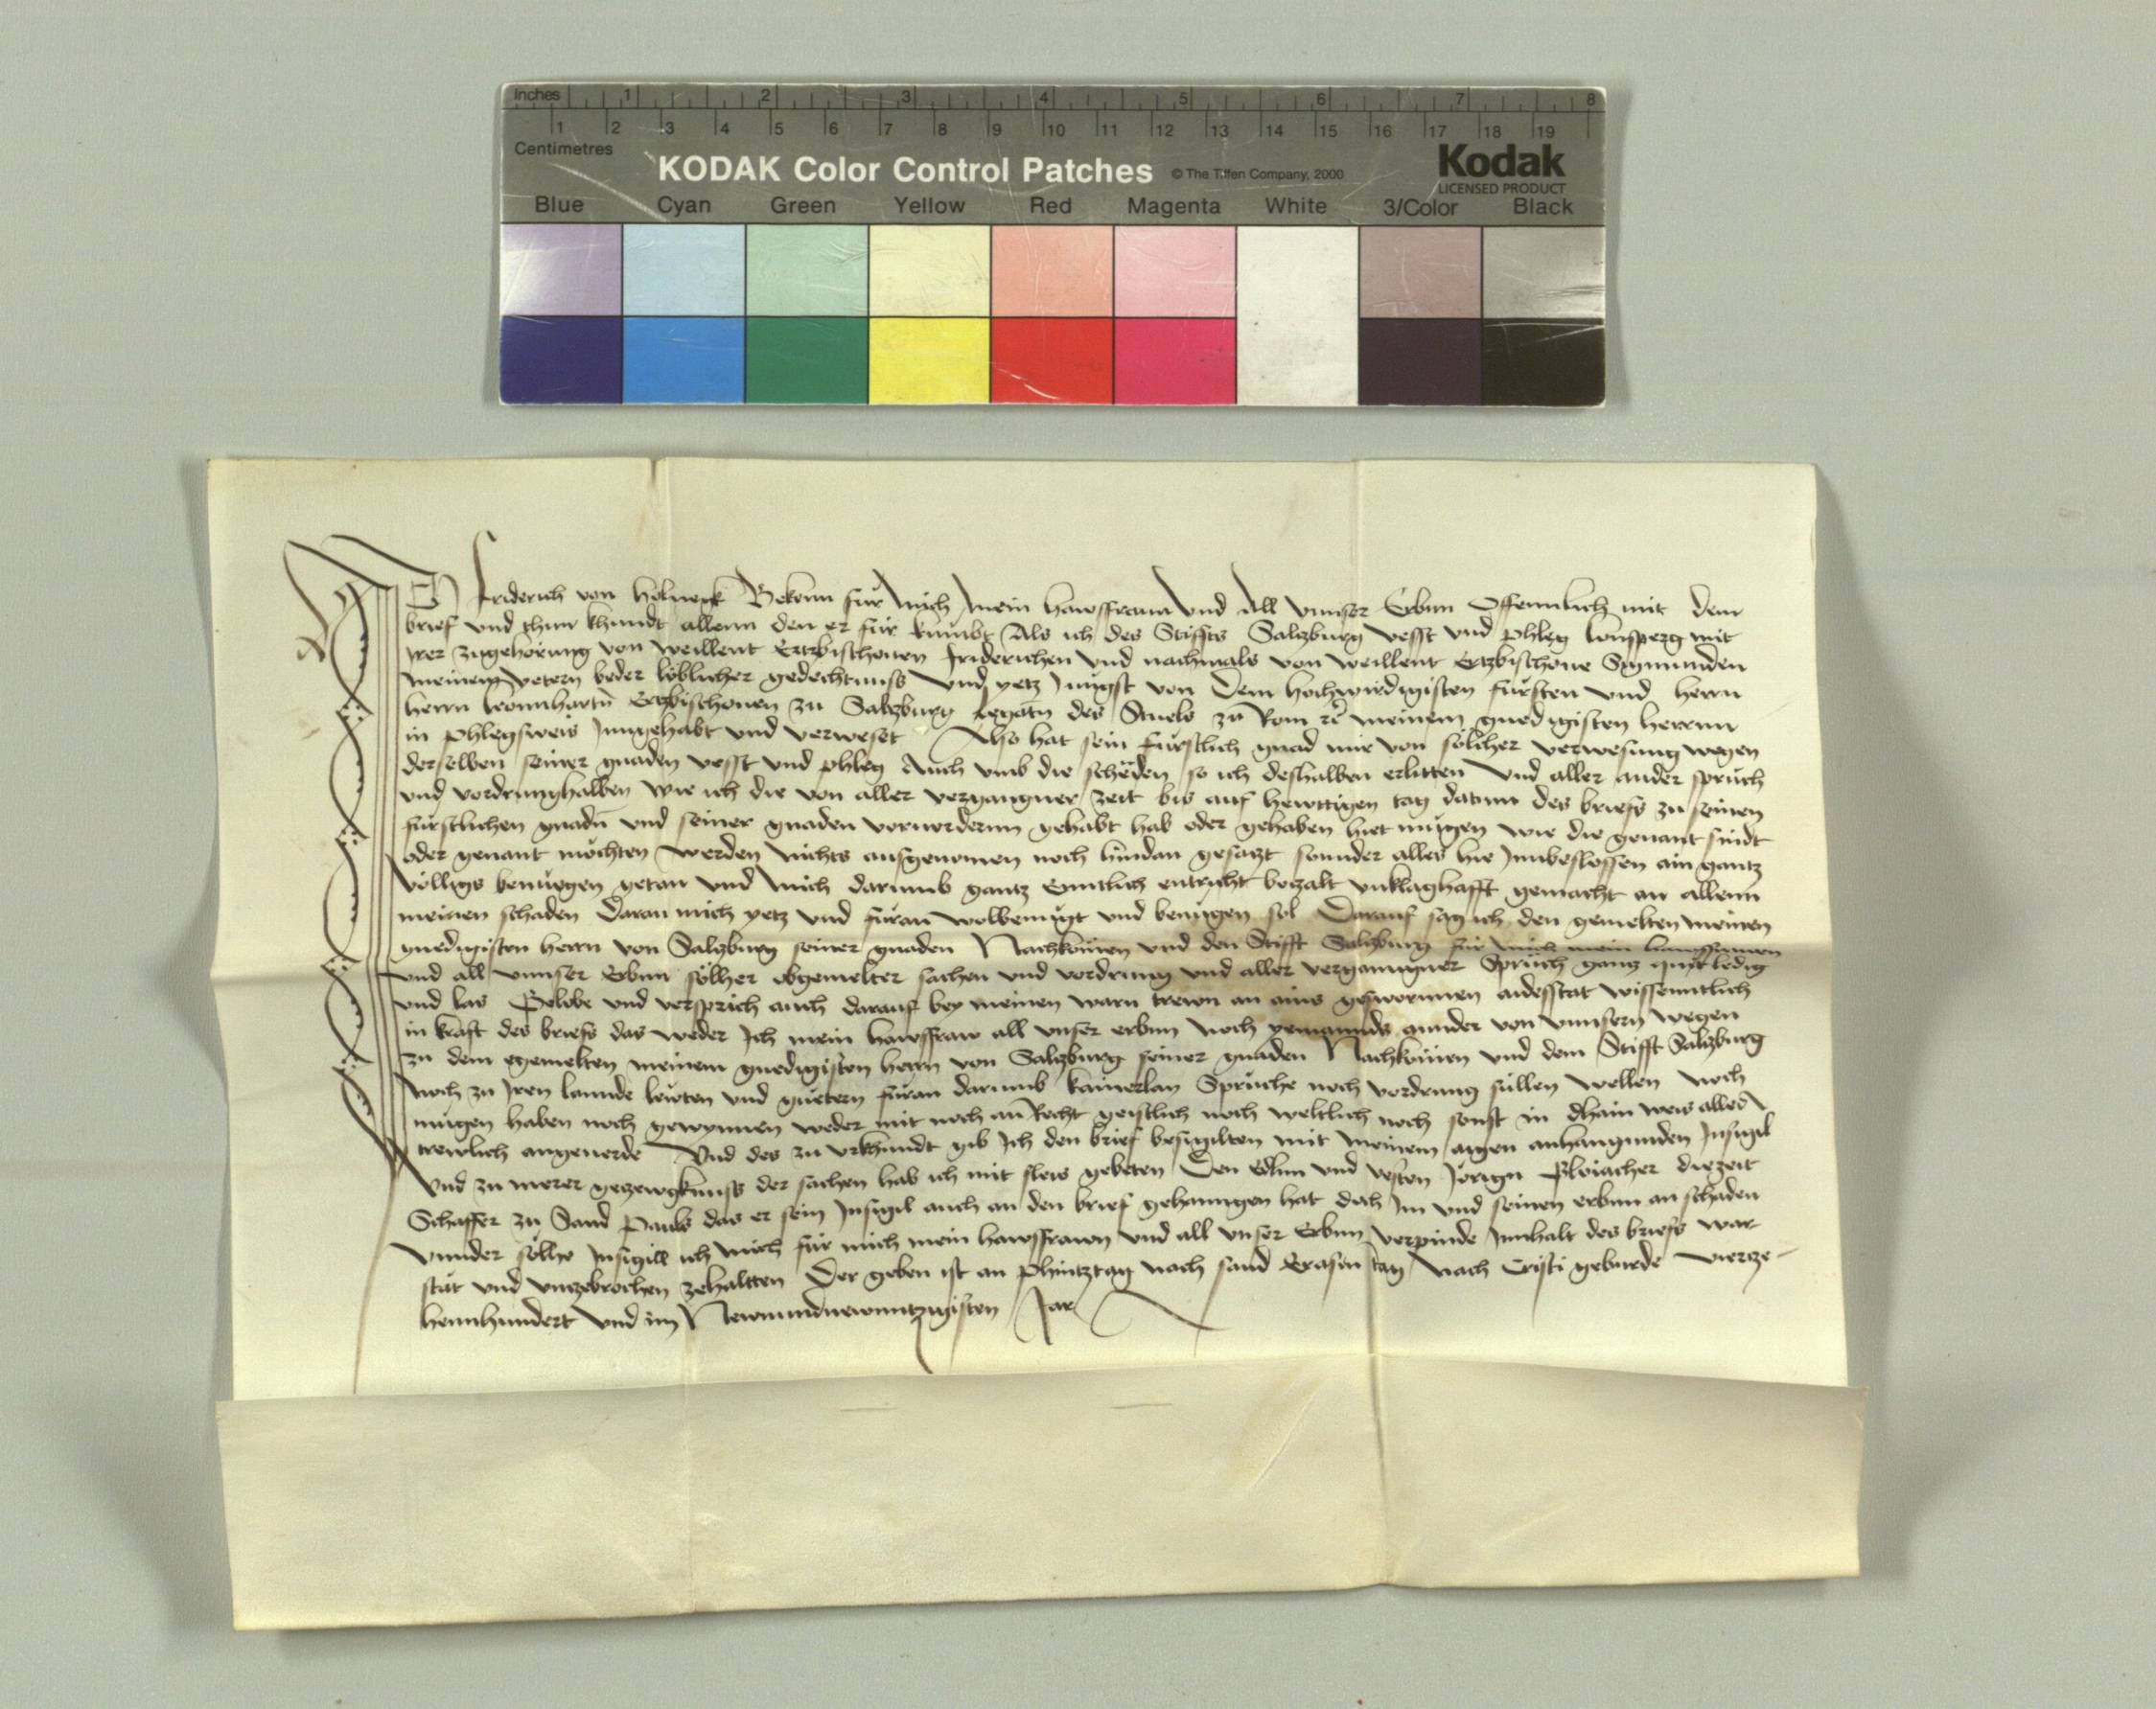 Inches 1 2 3 4 5 6 7 8
1 2 3 4 5 6 7 8 9 10 11 12 13 14 15 16 17 18 19
Centimetres
KODAK Color Control Patches © The Tiffen Company, 2000 Kodak
LICENSED PRODUCT
Blue Cyan Green Yellow Red Magenta White 3/Color Black
Ich Friderich von Holneck Bekenn für mich mein hawsfrawn vnd all vnnser Erbnn Offennlich mit dem
brief vnd thun khundt allenn den er für kumbt Als ich des Stiffts Salzburg vesst vnd phleg Lonsperg mit
irer zugehörung von weillent Ertzbischouen Friderichen vnd nachmals von weillent Ertzbischoue Sigmunden
meinem vetern beder löblicher gedechtnuss vnd yetz Jungst von Dem hochwirdigisten fürsten vnd herrn
herrn Leonnhartn̄ Ertzbischouen zu Salzburg Legatn des Stuels zu Rom ꝛc̄ meinem gnedigisten herrnn
in phlegsweis Jnngehabt vnd verweset Also hat sein fürstlich gnad mir von sölcher verwesung wegen
derselben seiner gnaden vesst vnd phleg Auch vmb die scheden so ich deshalben erlitten vnd aller ander sprüch
vnd vordrunghalben wie ich die von aller vergangner zeit bis auf hewttigen tag datum des briefs zu seinen
fürstlichen gnadn̄ vnd seiner gnaden voruordernn gehabt hab oder gehaben hiet mügen wie die genant sindt
oder genant möchten werden nichts ausgenomen noch hindan gesatzt sonnder alles hie Jnnbeslossen ain gantz
völligs benuegen getan vnd mich darumb gantz Enntlich entricht bezalt vnklaghafft gemacht an allenn
meinen schaden Daran mich yetz vnd füran wolbenügt vnd benügen sol Darauf sag ich den gemelten meinen
gnedigisten herrn von Salzburg seiner gnaden Nachkomen vnd den Stifft Salzburg für mich mein hawsfrawen
vnd all vnnser Erbnn sölher obgemelter sachen vnd vordrung vnd aller verganngner Sprüch gantz quit ledig
vnd los Gelobe vnd versprich auch darauf bey meinen warn trewn an ains geswornnen aidesstat wissenntlich
in kraft des briefs das weder Jch mein hawsfraw all vnser erbnn noch yemannds annder von vnnsern wegen
zu dem egemelten meinem gnedigisten herrn von Salzburg seiner gnaden Nachkomen vnd dem Stifft Salzburg
noch zu Jren lannde lewten vnd guetern füran darumb kainerlay Sprüche noch vordrung süllen wellen noch
mügen haben noch gewynnen weder mit noch an Recht geistlich noch weltlich noch sonst in dhain weis alles
trewlich angeuerde Vnd des zu vrkhundt gib Jch den brief besigilten mit meinem aigen anhangunden Jnsigil
Vnd zu merer gezewgknuss der sachen hab ich mit fleis gebeten Den Edlnn vnd vesten Jörign Ploiacher diezeit
Schaffer zu Sand Pauls das er sein Jnsigil auch an den brief gehanngen hat doch Jm vnd seinen erbnn an schaden
Vnnder sölhe Jnsigill ich mich für mich mein hawsfrawn vnd all vnser Erbnn verpinde Jnnhalt des briefs war
stät vnd vnzebrochen zehaltten Der geben ist an Phintztag nach sand Erasm tag Nach Cristi geburde vierze-
hennhundert vnd im Newnundnewntzigisten Jar